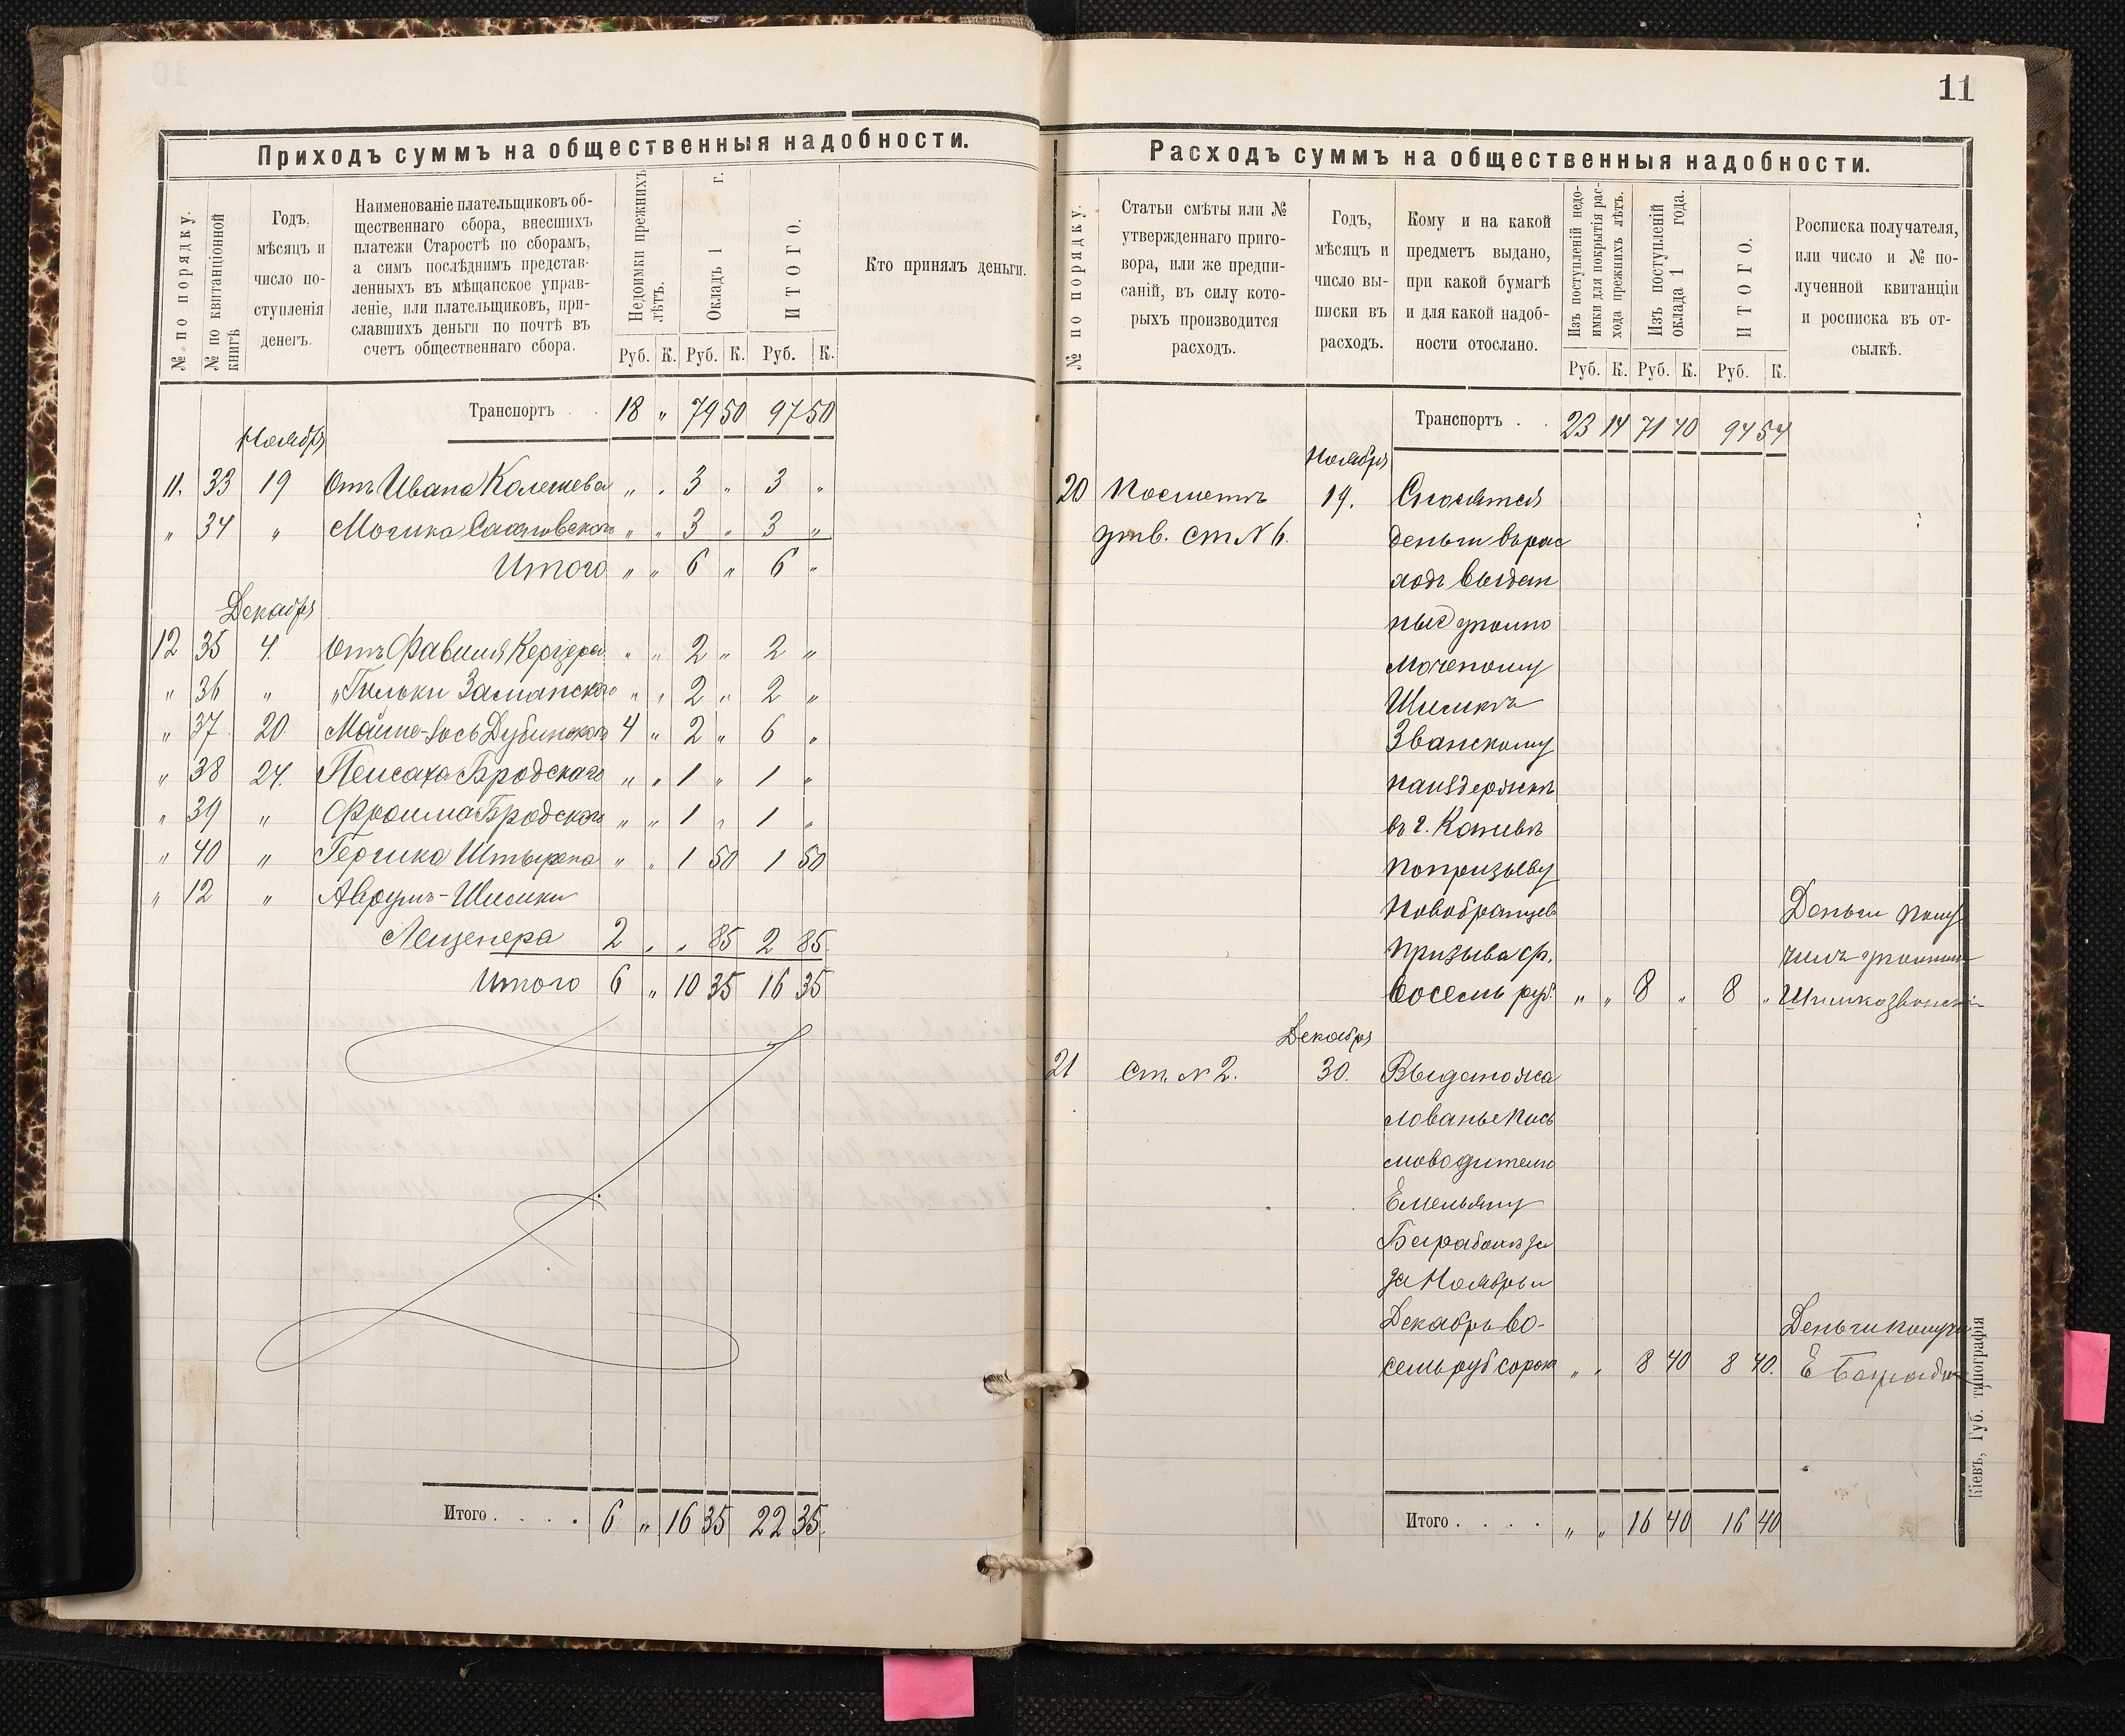 11
Приходъ суммъ на общественныя надобности.
№ по порядку.
№ по квитанціонной книгѣ
Годъ,
мѣсяцъ и
число по-
ступленія
денегъ.
Наименованіе плательщиковъ об-
щественнаго сбора, внесшихъ
платежи Старостѣ по сборамъ,
а симъ послѣднимъ представ-
ленныхъ въ мѣщанское управ-
леніе, или плательщиковъ, при-
славшихъ деньги по почтѣ въ
счетъ общественнаго сбора.
Недоимки прежнихъ
лѣтъ.
Окладъ 1 г.
ИТОГО.
Кто принялъ деньги.
Руб. К. Руб. К. Руб. К.
Транспортъ . . 18 " 79 50 97 50
Ноября
11. 33 19 Отъ Ивана " " 3 " 3 "
" 34 " Мошка " " 3 " 3 "
Итого " " 6 " 6 "
Декабря
12 35 4. Отъ " " 2 " 2 "
" 36 " " Заманскаго " " 2 " 2 "
" 37 20. Дубинскаго 4 " 2 " 6 "
" 38 24. Пейсаха Бродскаго " " 1 " 1 "
" 39 " Фроима Бродскаго " " 1 " 1 "
" 40 " Гершка " " 1 50 1 50
" 12 " Аврумъ-Шимки
Лещенера 2 " " 85 2 85
Итого 6 " 10 35 16 35
Итого . . . . 6 " 16 35 22 35.
Расходъ суммъ на общественныя надобности.
№ по порядку.
Статьи смѣты или №
утвержденнаго приго-
вора, или же предпи-
саній, въ силу кото-
рыхъ производится
расходъ.
Годъ,
мѣсяцъ и
число вы-
писки въ
расходъ.
Кому и на какой
предметъ выдано,
при какой бумагѣ
и для какой надоб-
ности отослано.
Изъ поступленій недо-
имки для покрытія рас-
хода прежнихъ лѣтъ.
Изъ поступленій
оклада 1 года.
ИТОГО.
Росписка получателя,
или число и № по-
лученной квитанціи
и росписка въ от-
сылкѣ.
Руб. К. Руб. К. Руб. К.
Транспортъ . . 23 14 71 40 94 54
Ноября
20 По сметѣ 19.
утв. ст № 6. деньги в рас
ходъ выдан
ные уполно
моченому
Шимкѣ
Званскому
на издержкѣ
въ г. Каневѣ
по призыву
Новобранцев Деньги полу
призыва ср. чилъ
восемь руб. " " 8 " 8 " Шимко
Декабря
21 ст. № 2. 30. Выдано жа
лованье пись
моводителю
Емельяну
за Ноябрь и
Декабрь во- Деньги получ
семь руб сорок " " 8 40 8 40. Е
Итого . . . . " " 16 40 16 40
Кіевъ, Губ. типографія